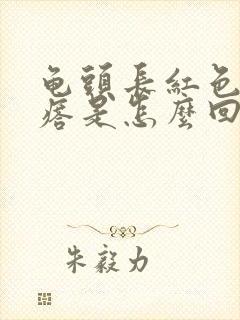 龟頭長紅色
痞是怎麼回
朱毅力